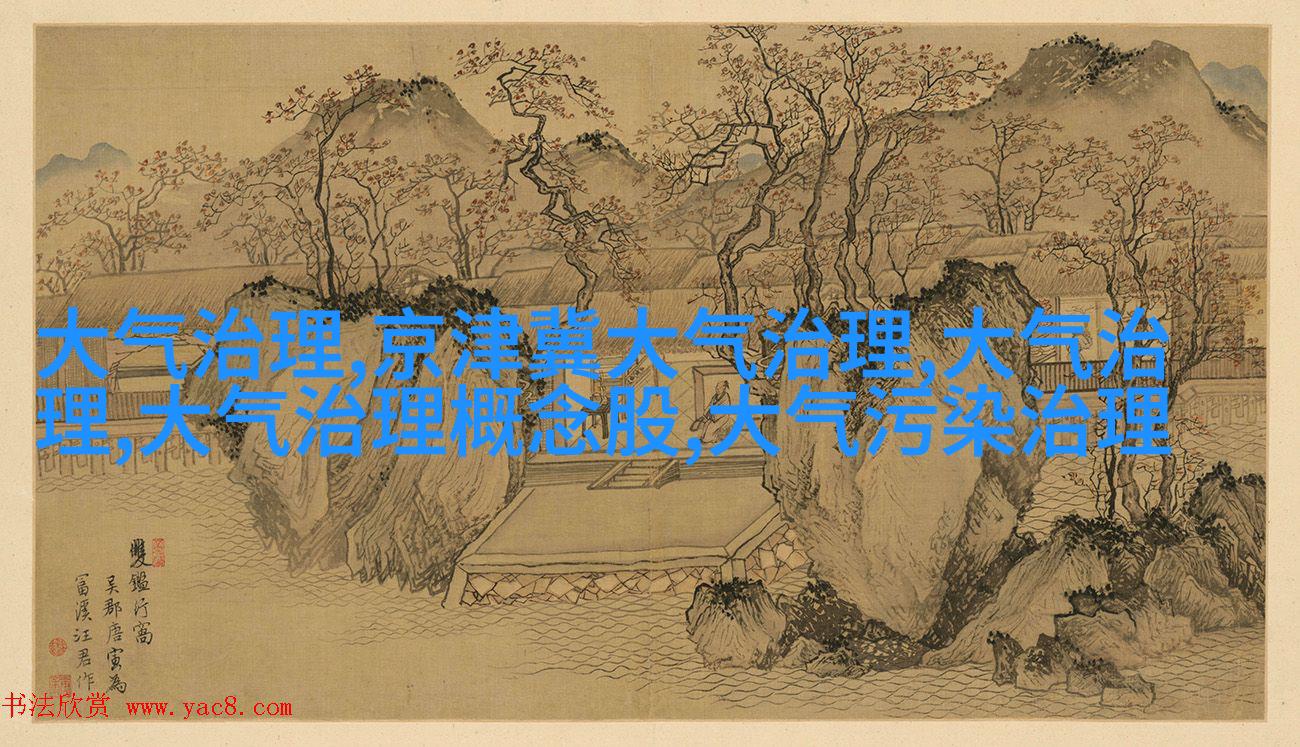 大气治理,京津冀大气治理,大气治
理,大气治理概念股,大气污染治理
雙鑑行窩
吴郡唐寅為
富溪汪君作
书法欣赏 www.yac8.com